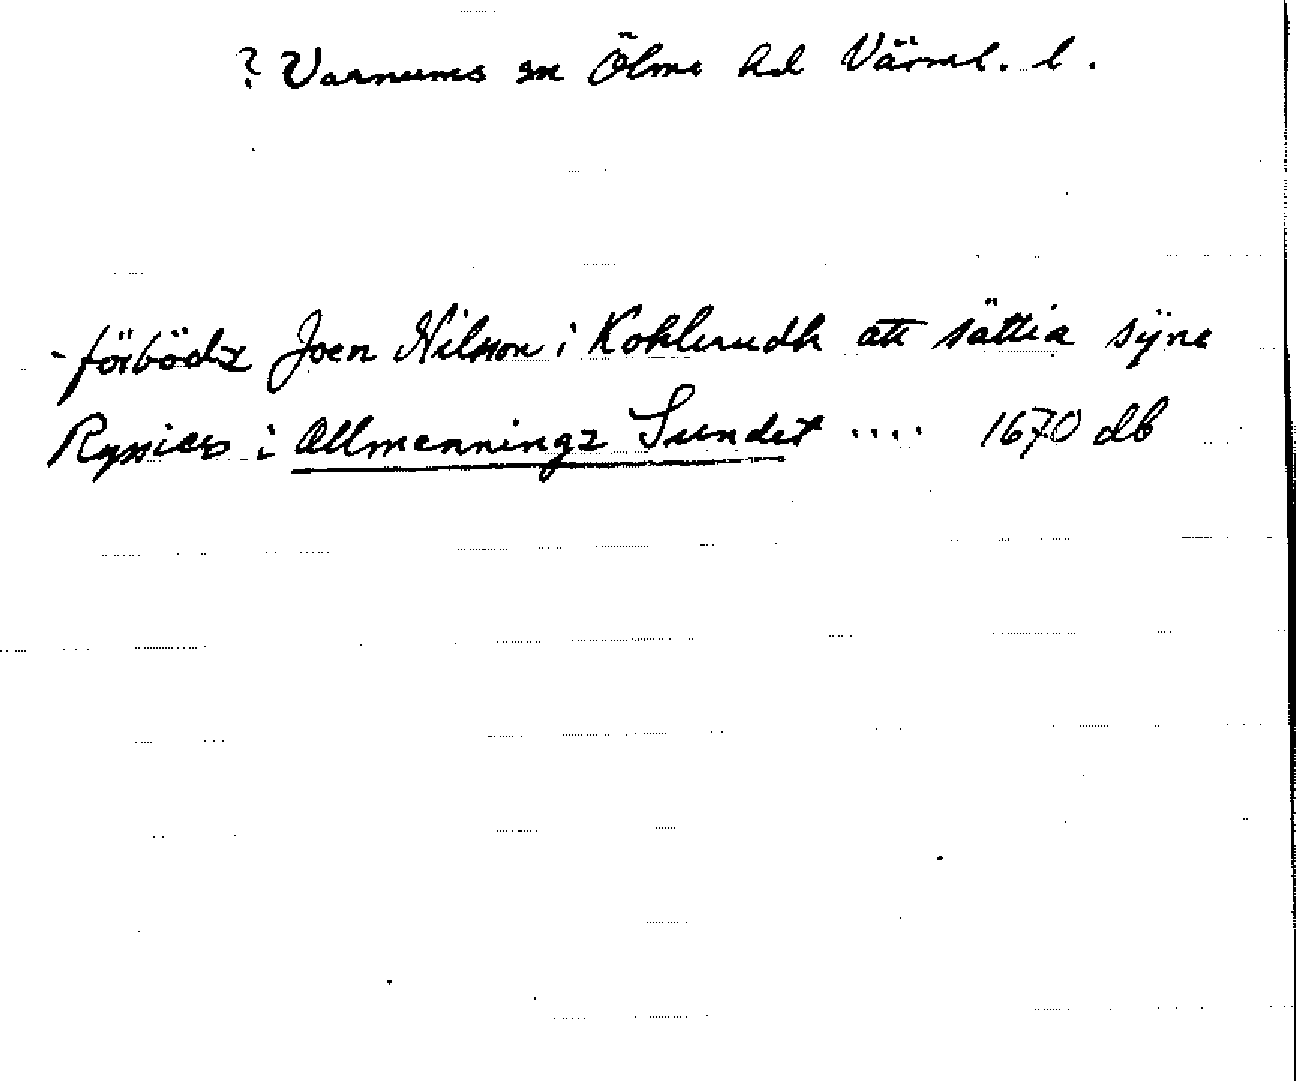 ? Varnums sn Ölme hd Värml. l.
- förbödz Joen Nilsson i Kohlerudh att sättia sÿne
Ryssier i Allmenningz Sundet .... 1670 db